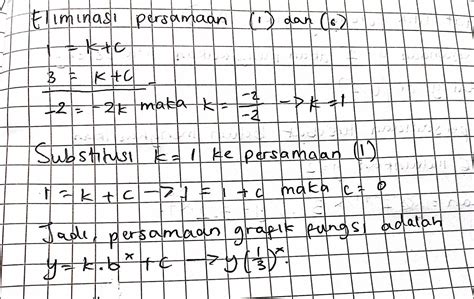 Eliminasi persamaan (1) dan (6)
1 = k+c
3 = k+c
-2 = -2k maka k = -2/-2 → k = 1
Substitusi k = 1 ke persamaan (1)
1 = k + c → 1 = 1 + c maka c = 0
Jadi, persamaan grafik fungsi adalah
y = k . b^x + c → y (1/3)^x.